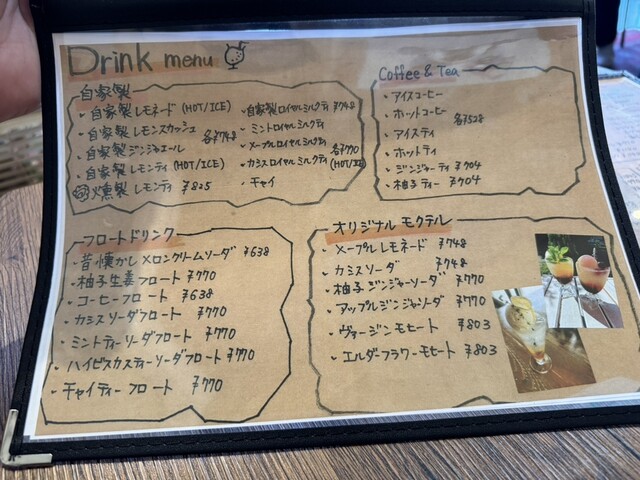 Drink menu
自家製
・自家製レモネード (HOT/ICE)
・自家製レモンスカッシュ
・自家製ジンジャエール
各¥748
・自家製レモンティ (HOT/ICE)
燻製レモンティ ¥825
・自家製ロイヤルミルクティ ¥748
・ミントロイヤルミルクティ
・メープルロイヤルミルクティ
・カシスロイヤルミルクティ
各¥770
(HOT/ICE)
・チャイ
Coffee & Tea
・アイスコーヒー
・ホットコーヒー
各¥528
・アイスティ
・ホットティ
・ジンジャーティ ¥704
・柚子ティー ¥704
フロートドリンク
・昔懐かしメロンクリームソーダ ¥638
・柚子生姜フロート ¥770
・コーヒーフロート ¥638
・カシスソーダフロート ¥770
・ミントティーソーダフロート ¥770
・ハイビスカスティーソーダフロート ¥770
・チャイティーフロート ¥770
オリジナルモクテル
・メープルレモネード ¥748
・カシスソーダ ¥748
・柚子ジンジャーソーダ ¥770
・アップルジンジャーソーダ ¥770
・ヴァージンモヒート ¥803
・エルダフラワーモヒート ¥803